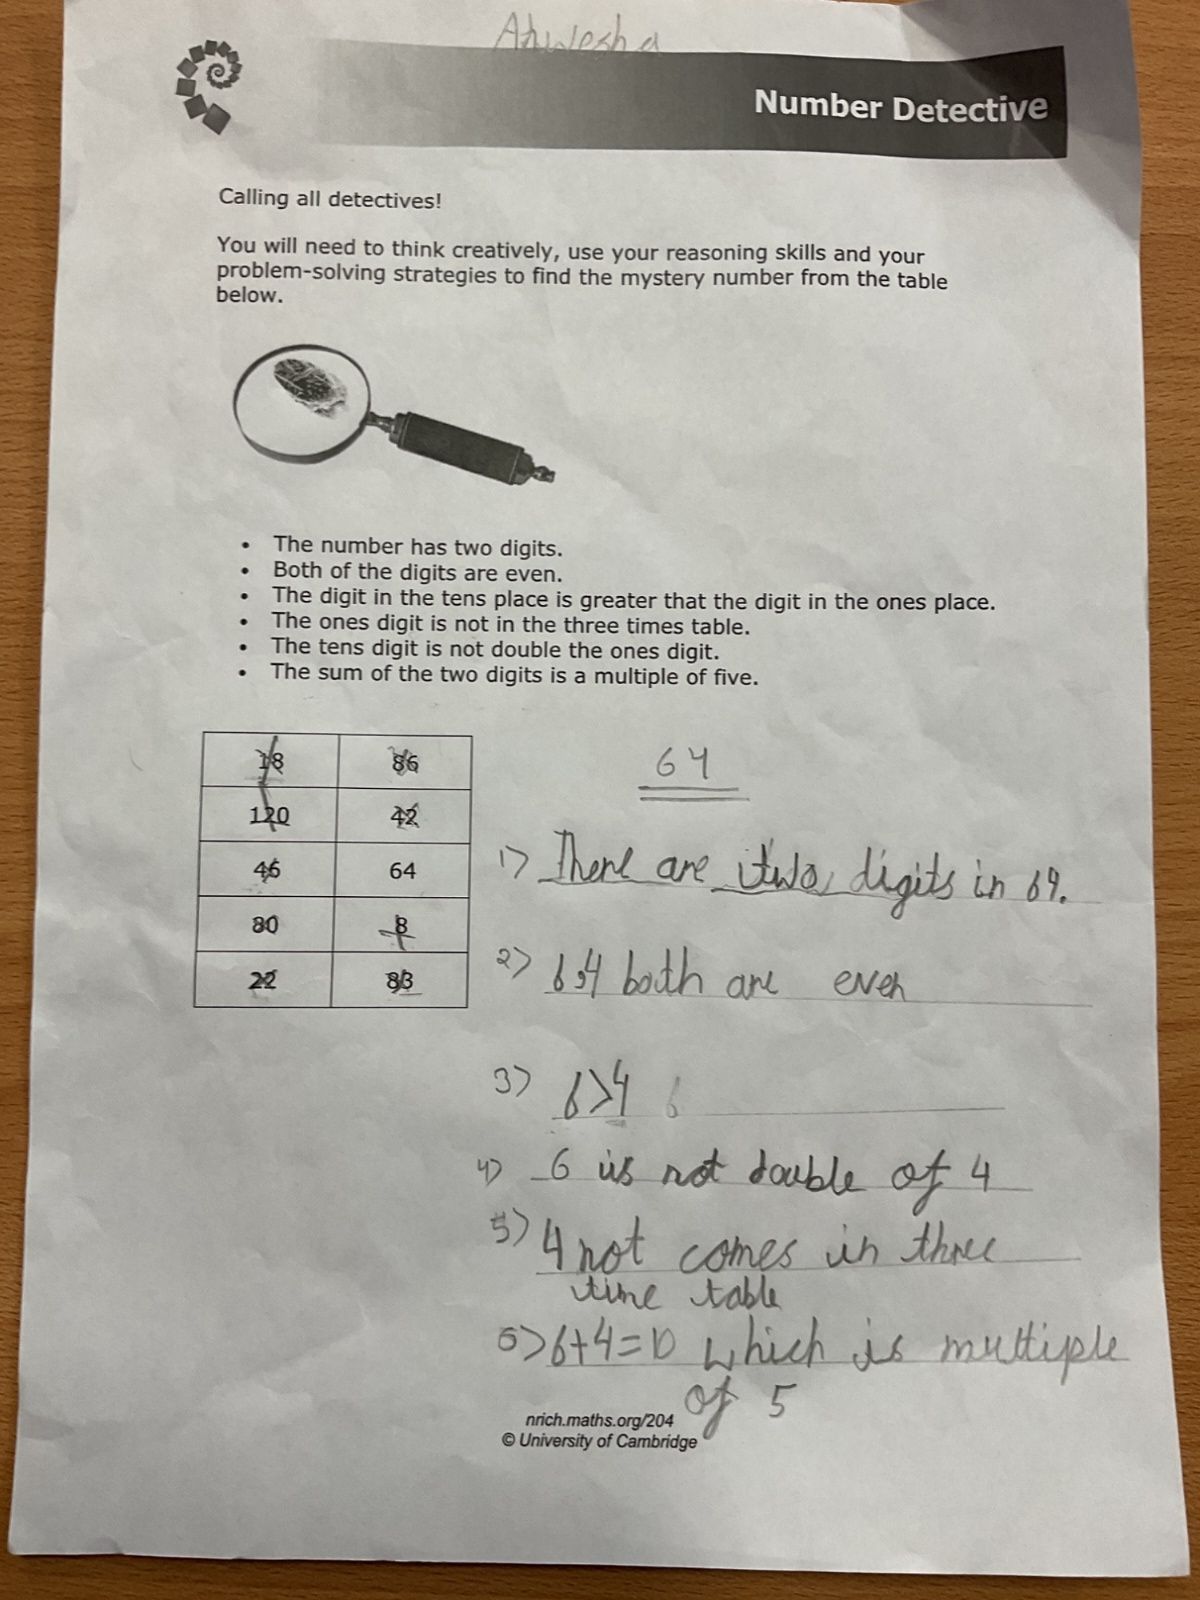 Number Detective
Calling all detectives!
You will need to think creatively, use your reasoning skills and your
problem-solving strategies to find the mystery number from the table
below.
• The number has two digits.
• Both of the digits are even.
• The digit in the tens place is greater that the digit in the ones place.
• The ones digit is not in the three times table.
• The tens digit is not double the ones digit.
• The sum of the two digits is a multiple of five.
18 86
120 42
46 64
80 8
22 83
64
1) There are two digits in 64.
2) 6,4 both are even
3) 6>4 6
4) 6 is not double of 4
5) 4 not comes in three
time table
6) 6+4=10 which is multiple
of 5
nrich.maths.org/204
© University of Cambridge